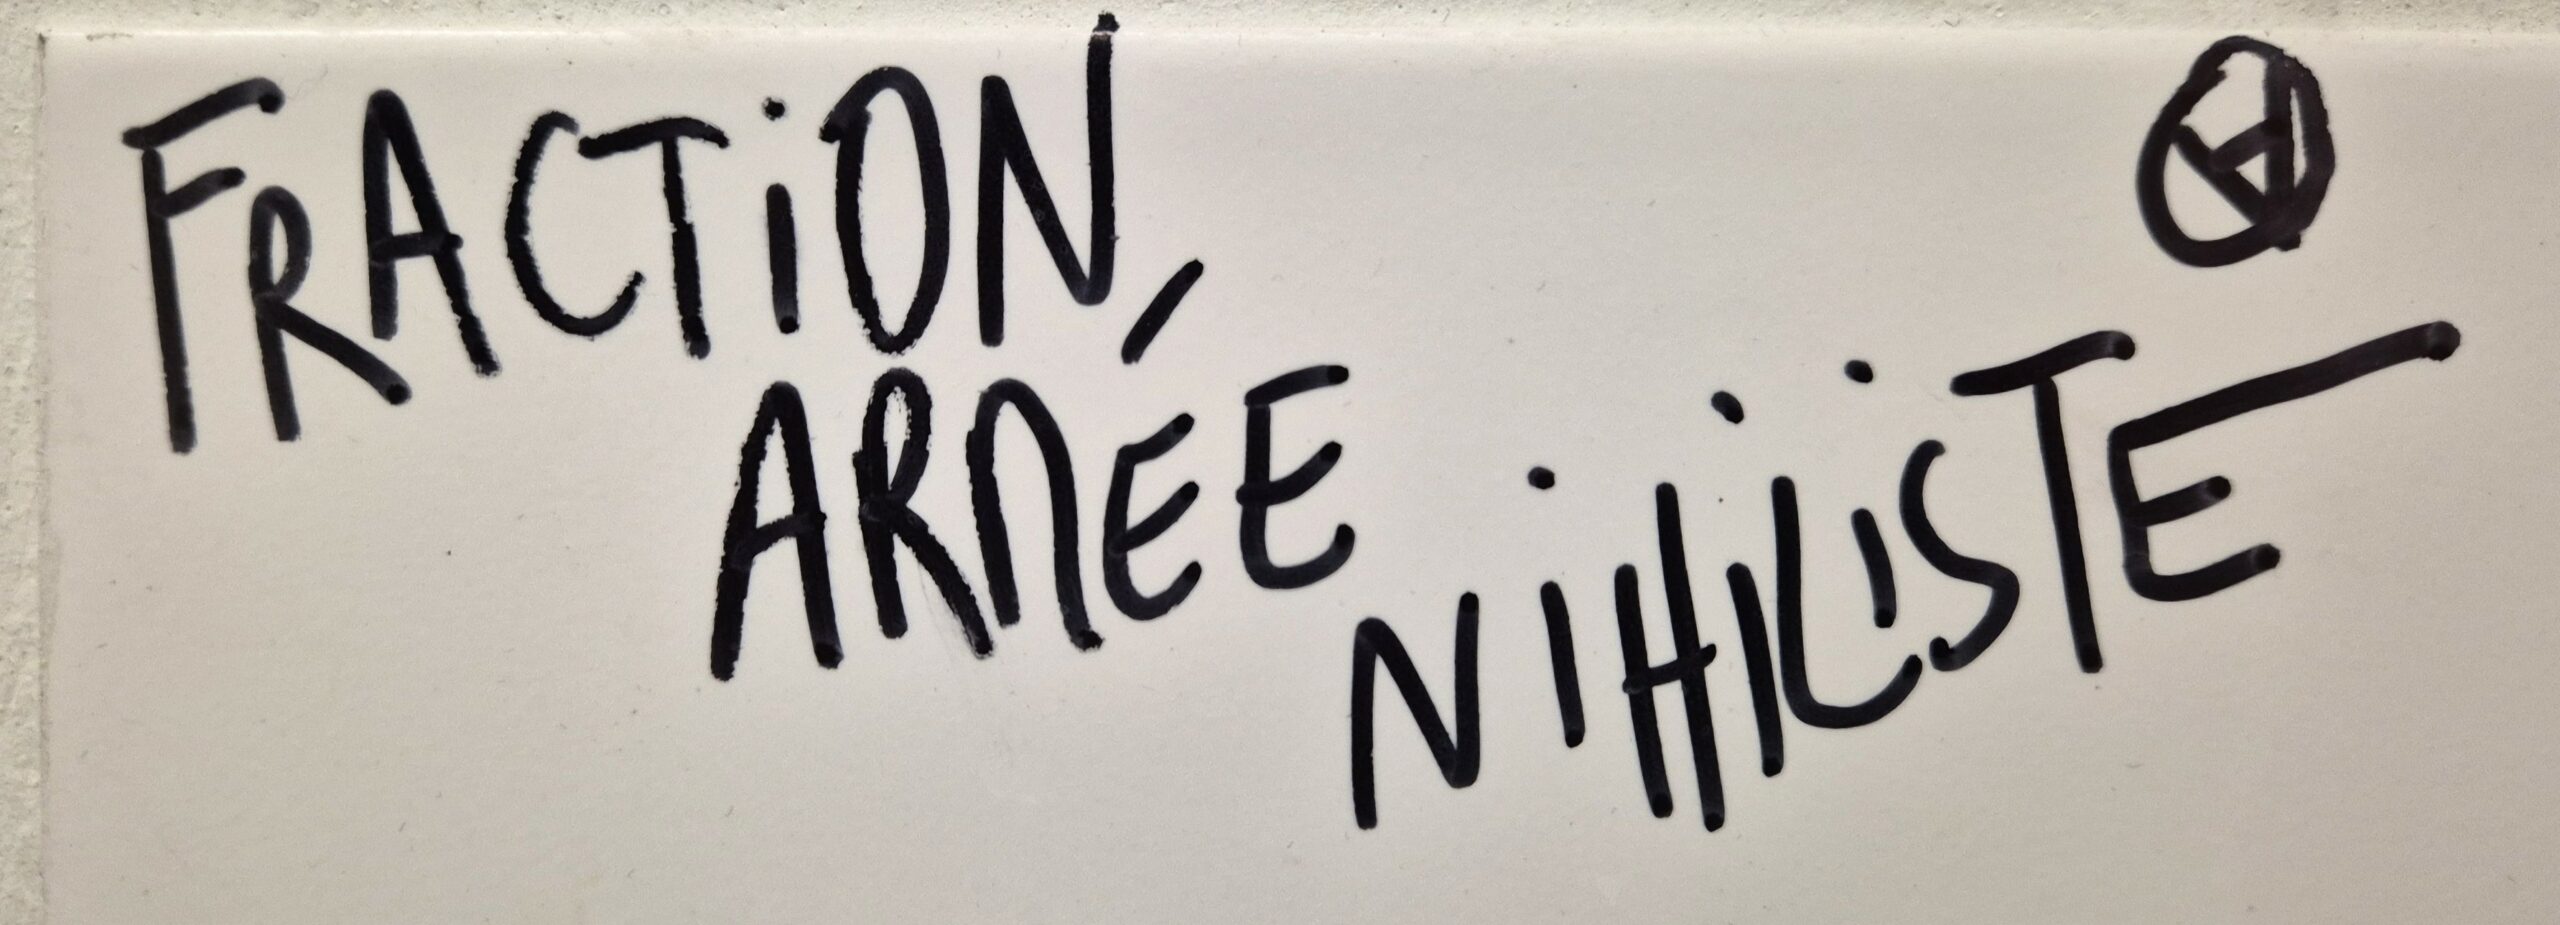 FRACTiON
ARNÉE
NiHiLiSTE